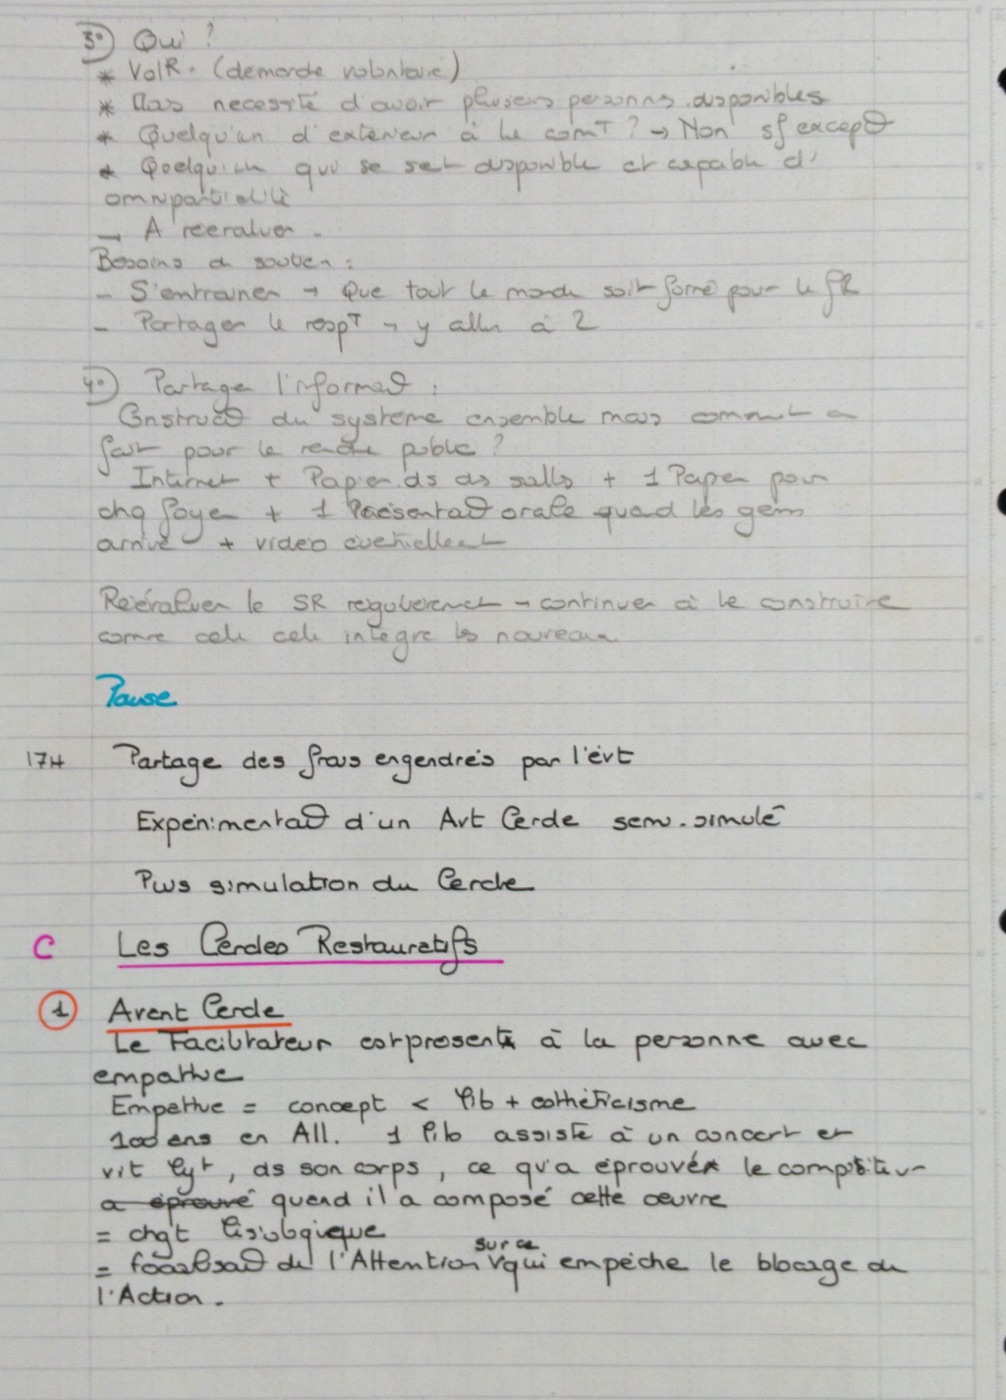 3°) Qui ?
* VolR. (demande volontaire)
* Mais necessité d'avoir plusieurs personnes disponibles
* Quelqu'un d'exterieur à la comT ? → Non sf except
* Quelqu'un qui se sent disponible et capable d'
omnipartialité
→ A reevaluer.
Besoins de soutien :
- S'entrainer → Que tout le monde soit formé pour le
- Partager le respT → y aller à 2
4°) Partage l'informat :
Construct du système ensemble mais comment on
fait pour le rendre public ?
Internet + Papier ds ds salles + 1 Papier pour
chq foyer + 1 Présentat orale quad les gens
arrive + video eventiellent
Réévaluer le SR regulierement → continuer à le construire
comme cela cela intègre les nouveaux
Pause
17H Partage des frais engendrés par l'évt
Experimentat d'un Avt Cercle semi-simulé
Puis simulation du Cercle
C Les Cercles Restauratifs
1 Avant Cercle
Le Facilitateur est présent à la personne avec
empathie
Empathie = concept <
100 ans en All. 1 assiste à un concert et
vit, ds son corps, ce qu'a éprouvé le compositeur
a éprouvé quand il a composé cette œuvre
= chgt
= focalisat de l'Attention sur ce qui empêche le blocage de
l'Action.